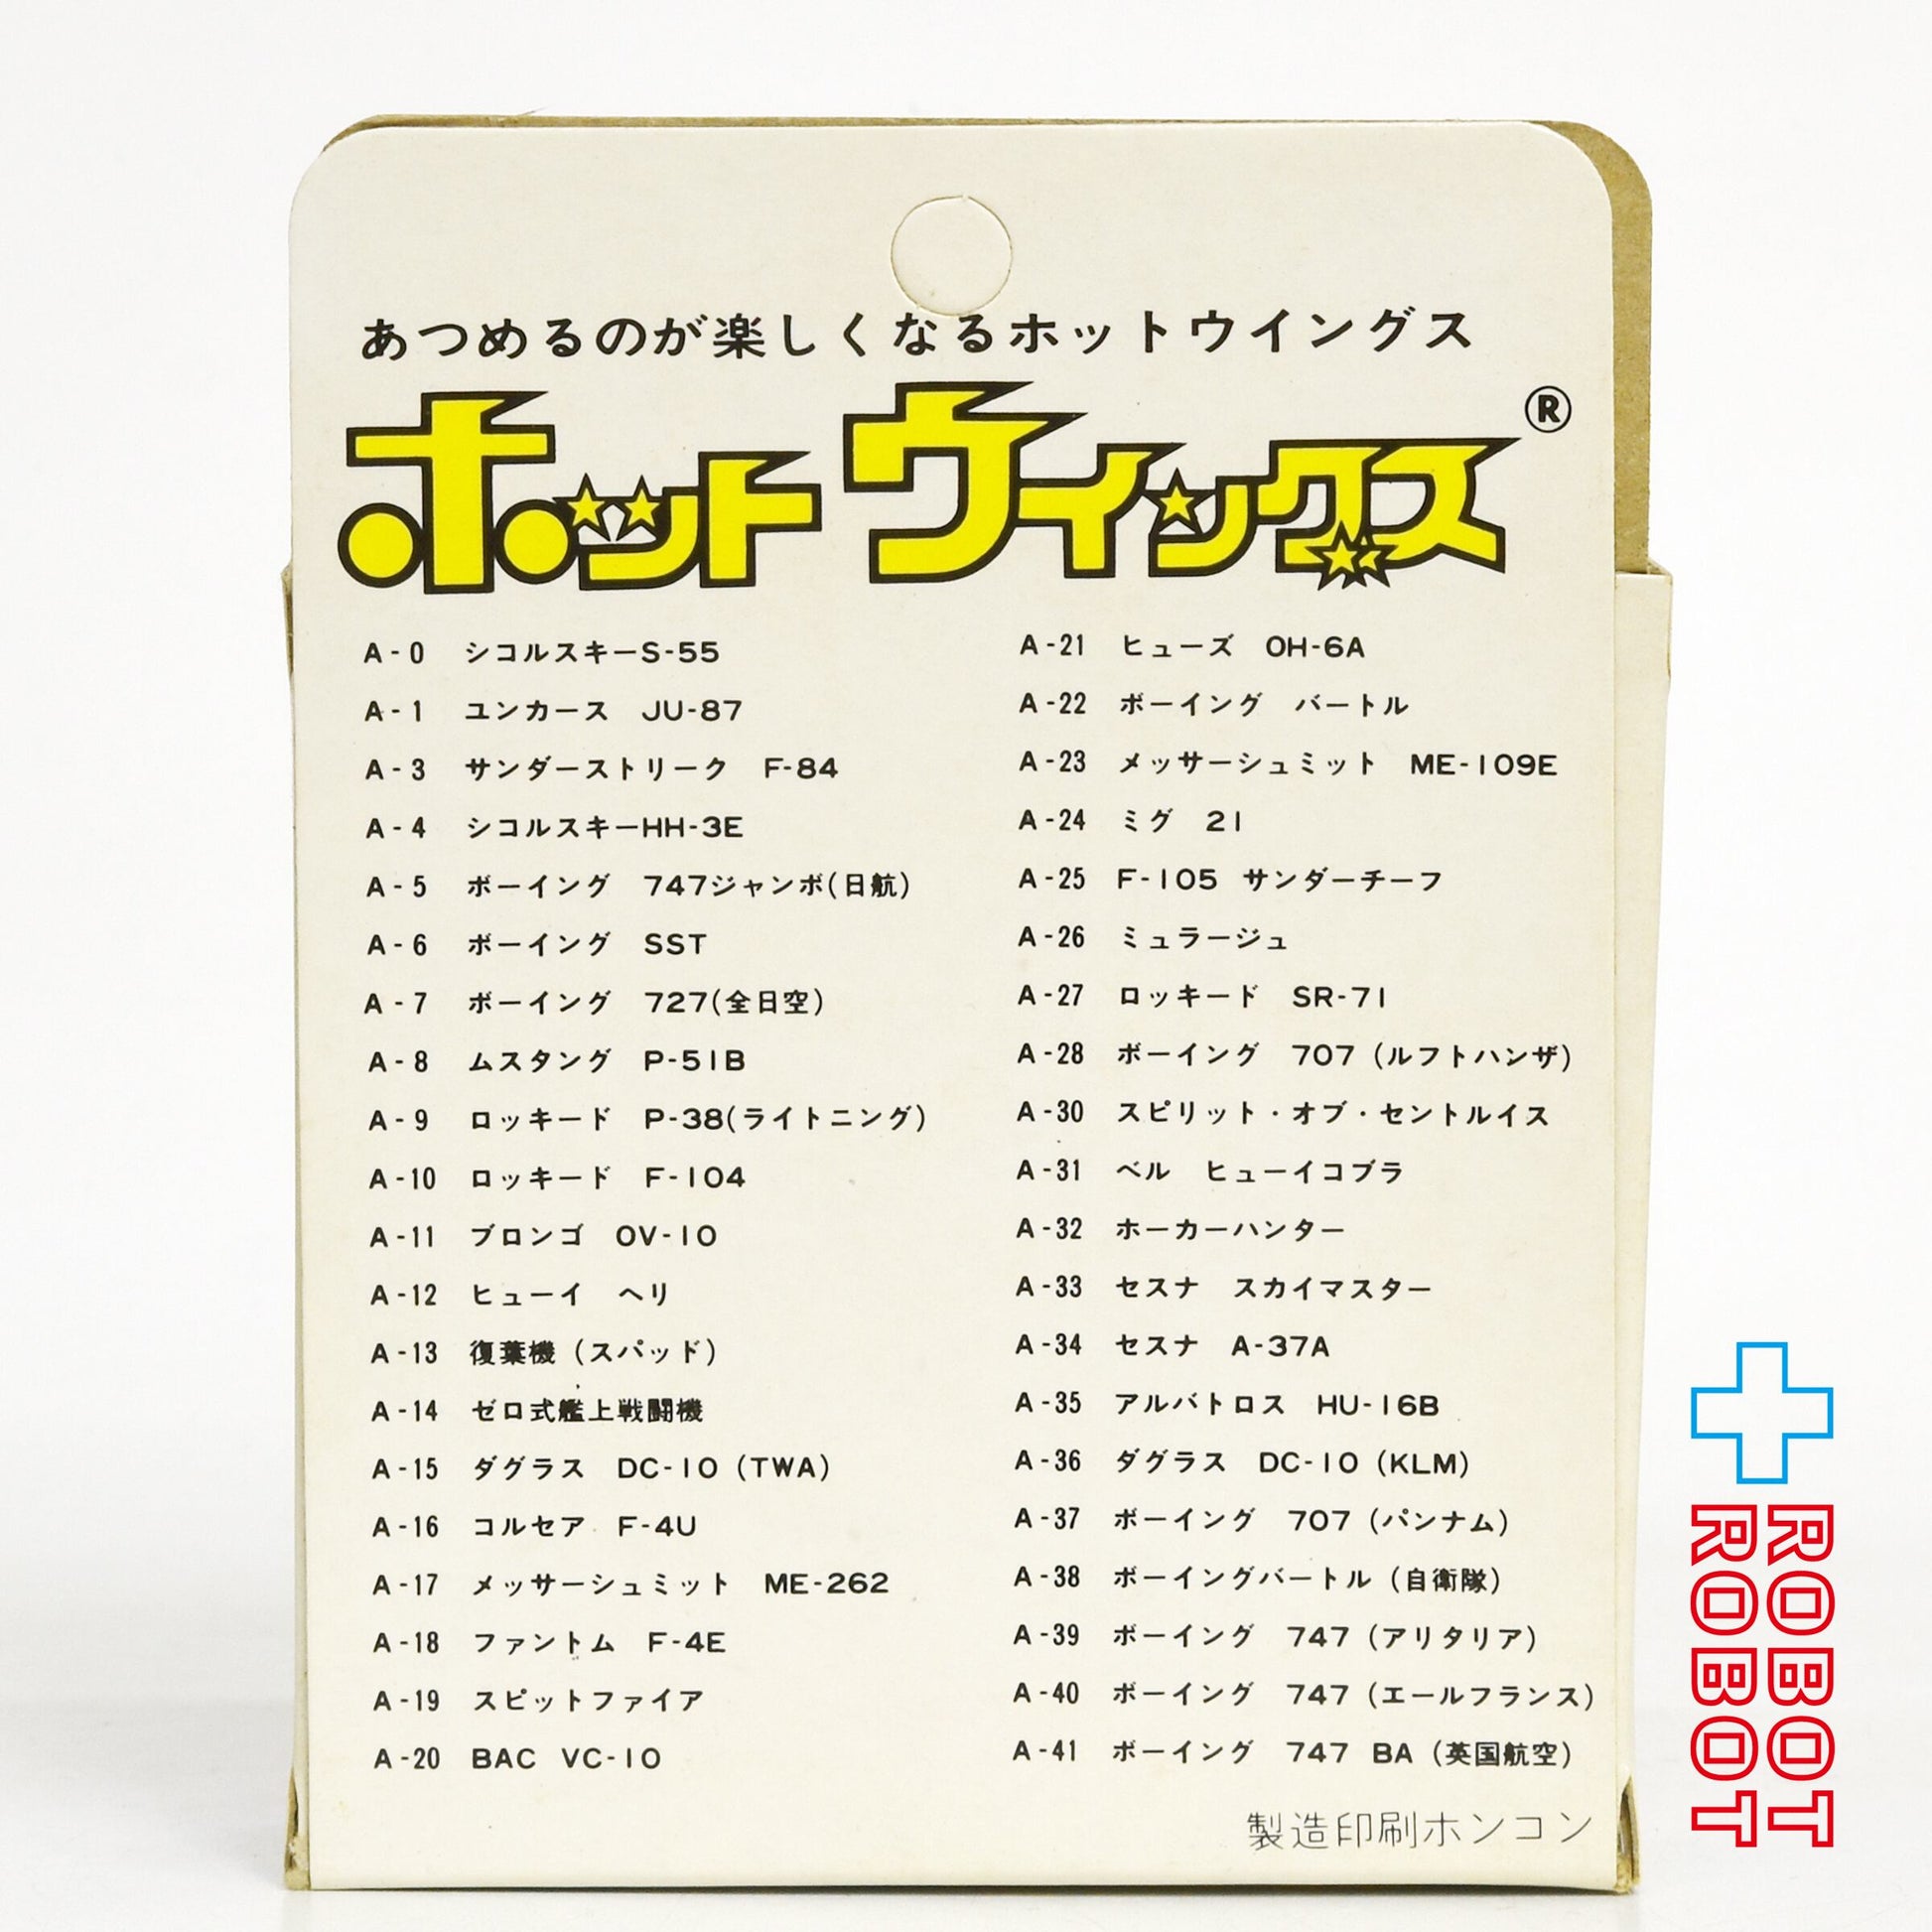 あつめるのが楽しくなるホットウイングス
ホットウイングス®
A-0 シコルスキーS-55
A-1 ユンカース JU-87
A-3 サンダーストリーク F-84
A-4 シコルスキーHH-3E
A-5 ボーイング 747ジャンボ(日航)
A-6 ボーイング SST
A-7 ボーイング 727(全日空)
A-8 ムスタング P-51B
A-9 ロッキード P-38(ライトニング)
A-10 ロッキード F-104
A-11 ブロンゴ OV-10
A-12 ヒューイ ヘリ
A-13 復葉機 (スパッド)
A-14 ゼロ式艦上戦闘機
A-15 ダグラス DC-10 (TWA)
A-16 コルセア F-4U
A-17 メッサーシュミット ME-262
A-18 ファントム F-4E
A-19 スピットファイア
A-20 BAC VC-10
A-21 ヒューズ OH-6A
A-22 ボーイング バートル
A-23 メッサーシュミット ME-109E
A-24 ミグ 21
A-25 F-105 サンダーチーフ
A-26 ミュラージュ
A-27 ロッキード SR-71
A-28 ボーイング 707 (ルフトハンザ)
A-30 スピリット・オブ・セントルイス
A-31 ベル ヒューイコブラ
A-32 ホーカーハンター
A-33 セスナ スカイマスター
A-34 セスナ A-37A
A-35 アルバトロス HU-16B
A-36 ダグラス DC-10 (KLM)
A-37 ボーイング 707 (パンナム)
A-38 ボーイングバートル (自衛隊)
A-39 ボーイング 747 (アリタリア)
A-40 ボーイング 747 (エールフランス)
A-41 ボーイング 747 BA (英国航空)
製造印刷ホンコン
ROBOT
ROBOT